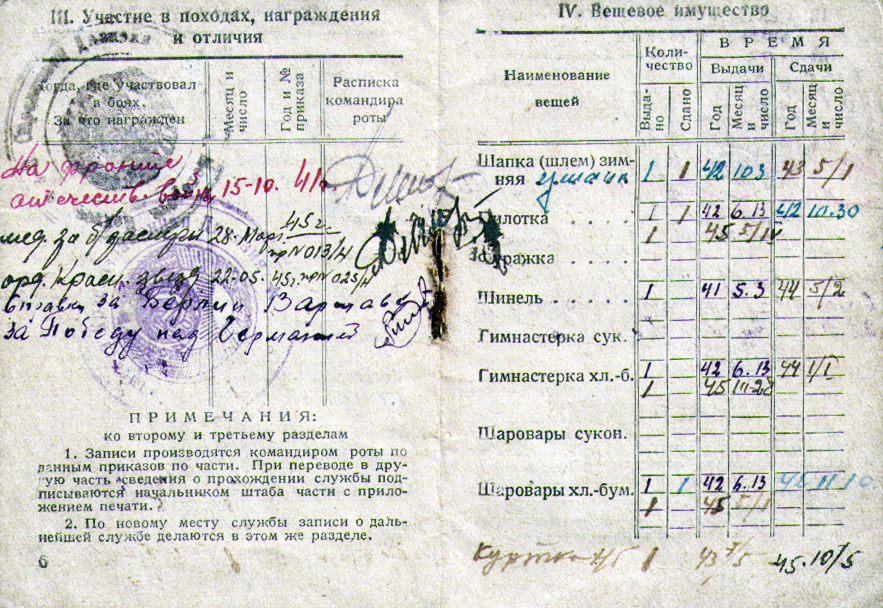 III. Участие в походах, награждения
и отличия
Когда, где участвовал
в боях.
За что награжден
Месяц и
число
Год и №
приказа
Расписка
командира
роты
На фронте
отечеств. войны 15-10. 41г
мед. за б/заслуги 28. Март 45 г.
пр N013/н
орд. Красн. звезд 22-05. 45г. пр N 025/н
за Берлин Варшаву
За Победу над Германией
ПРИМЕЧАНИЯ:
ко второму и третьему разделам
1. Записи производятся командиром роты по
данным приказов по части. При переводе в дру-
гую часть сведения о прохождении службы под-
писываются начальником штаба части с прило-
жением печати.
2. По новому месту службы записи о даль-
нейшей службе делаются в этом же разделе.
6
IV. Вещевое имущество
Наименование
вещей
Коли-
чество
ВРЕМЯ
Выдачи
Сдачи
Выда-
но
Сдано
Год
Месяц
и
число
Год
Месяц
и
число
Шапка (шлем) зим-
няя ушанк 1 1 42 10 3 43 5/1
Пилотка . . . . 1 1 42 6.13 42 10.30
1 45 5/IV
Фуражка
Шинель . . . . . 1 41 5.3 44 5/2
Гимнастерка сук.
Гимнастерка хл.-б. 1 42 6.13 44 1/I
1 45 III-28
Шаровары сукон.
Шаровары хл.-бум. 1 1 42 6.13
1 45 5/1
Куртка х/б 1 43 7/5 45.10/5